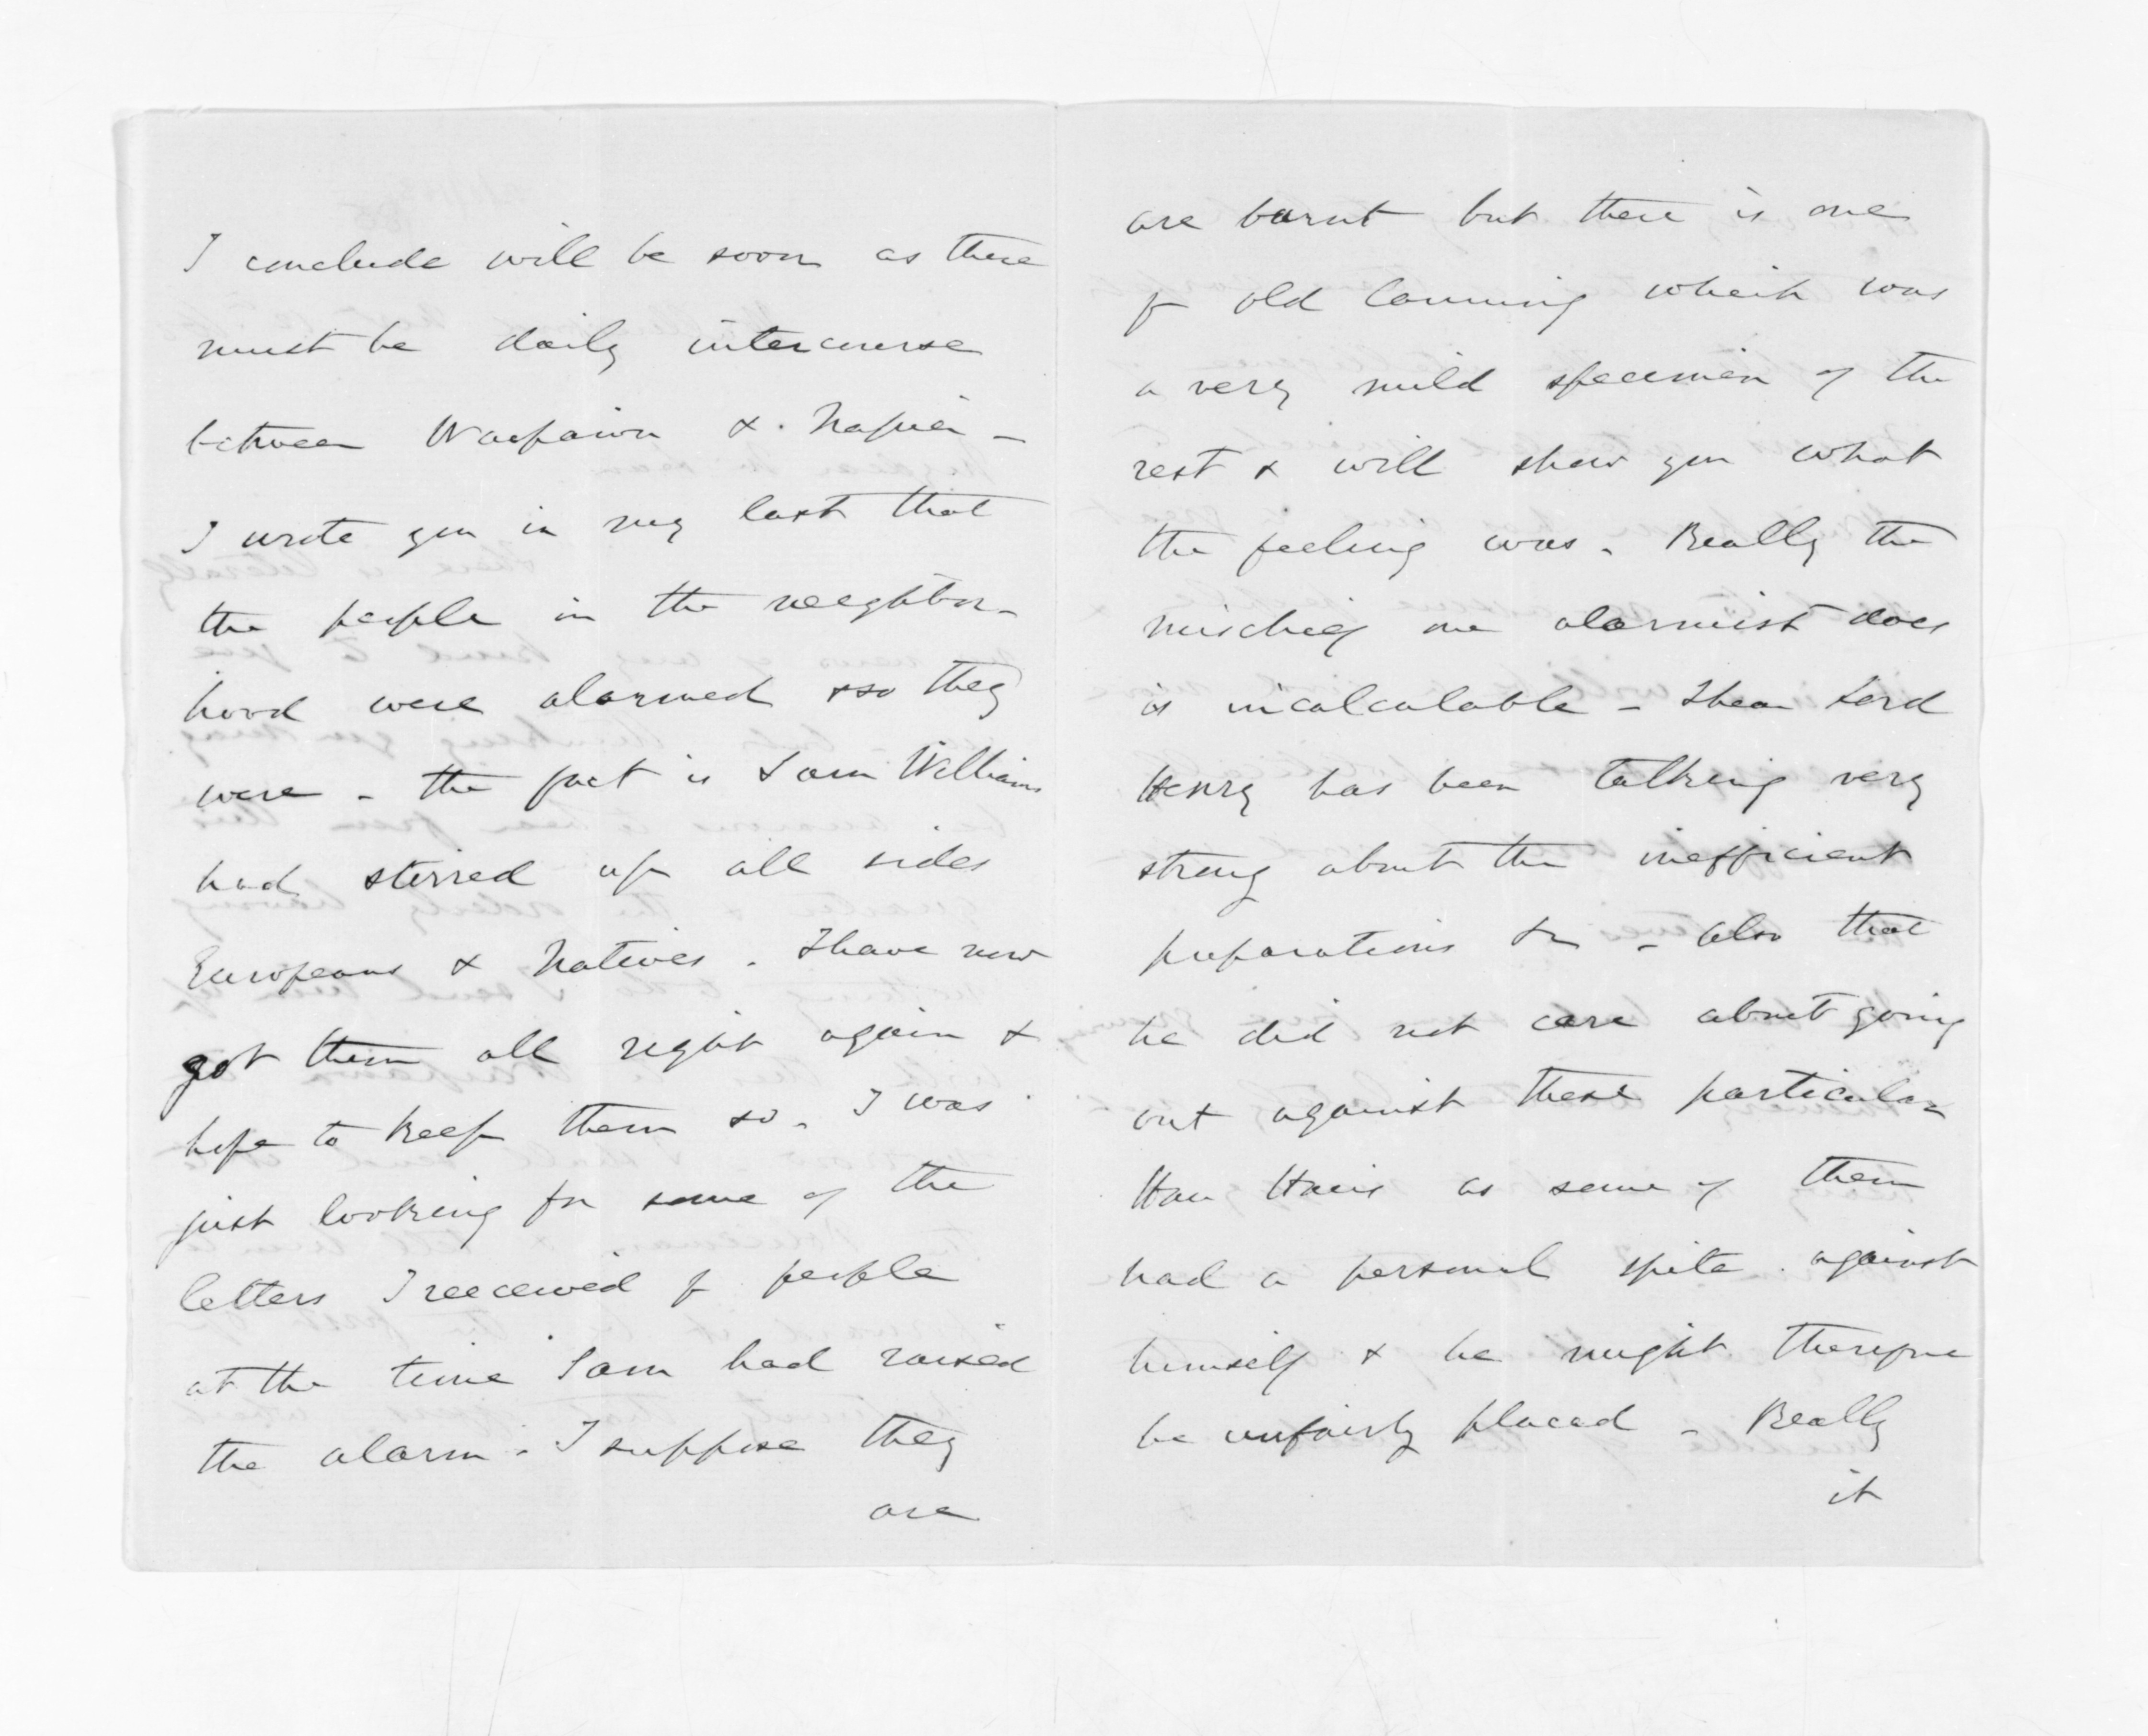 I conclude will be soon as there
must be daily intercourse
between Waipawa & Napier -
I wrote you in my last that
the people in the neighbor-
hood were alarmed & so they
were - the fact is Sam Williams
had stirred up all sides
Europeans & Natives. I have now
got them all right again &
hope to keep them so. I was
just looking for some of the
letters I received f people
at the time Sam had raised
the alarm. I suppose they
are
are burnt but there is one
f old Canning which was
a very mild specimen of the
rest & will show you what
the feeling was. Really the
mischief one alarmist does
is incalculable - I hear Lord
Henry has been talking very
strong about the inefficient
preparations &c - also that
he did not care about going
out against these particular
Hau Haus as some of them
had a personal spite against
himself & he might therefore
be unfairly placed - Really
it